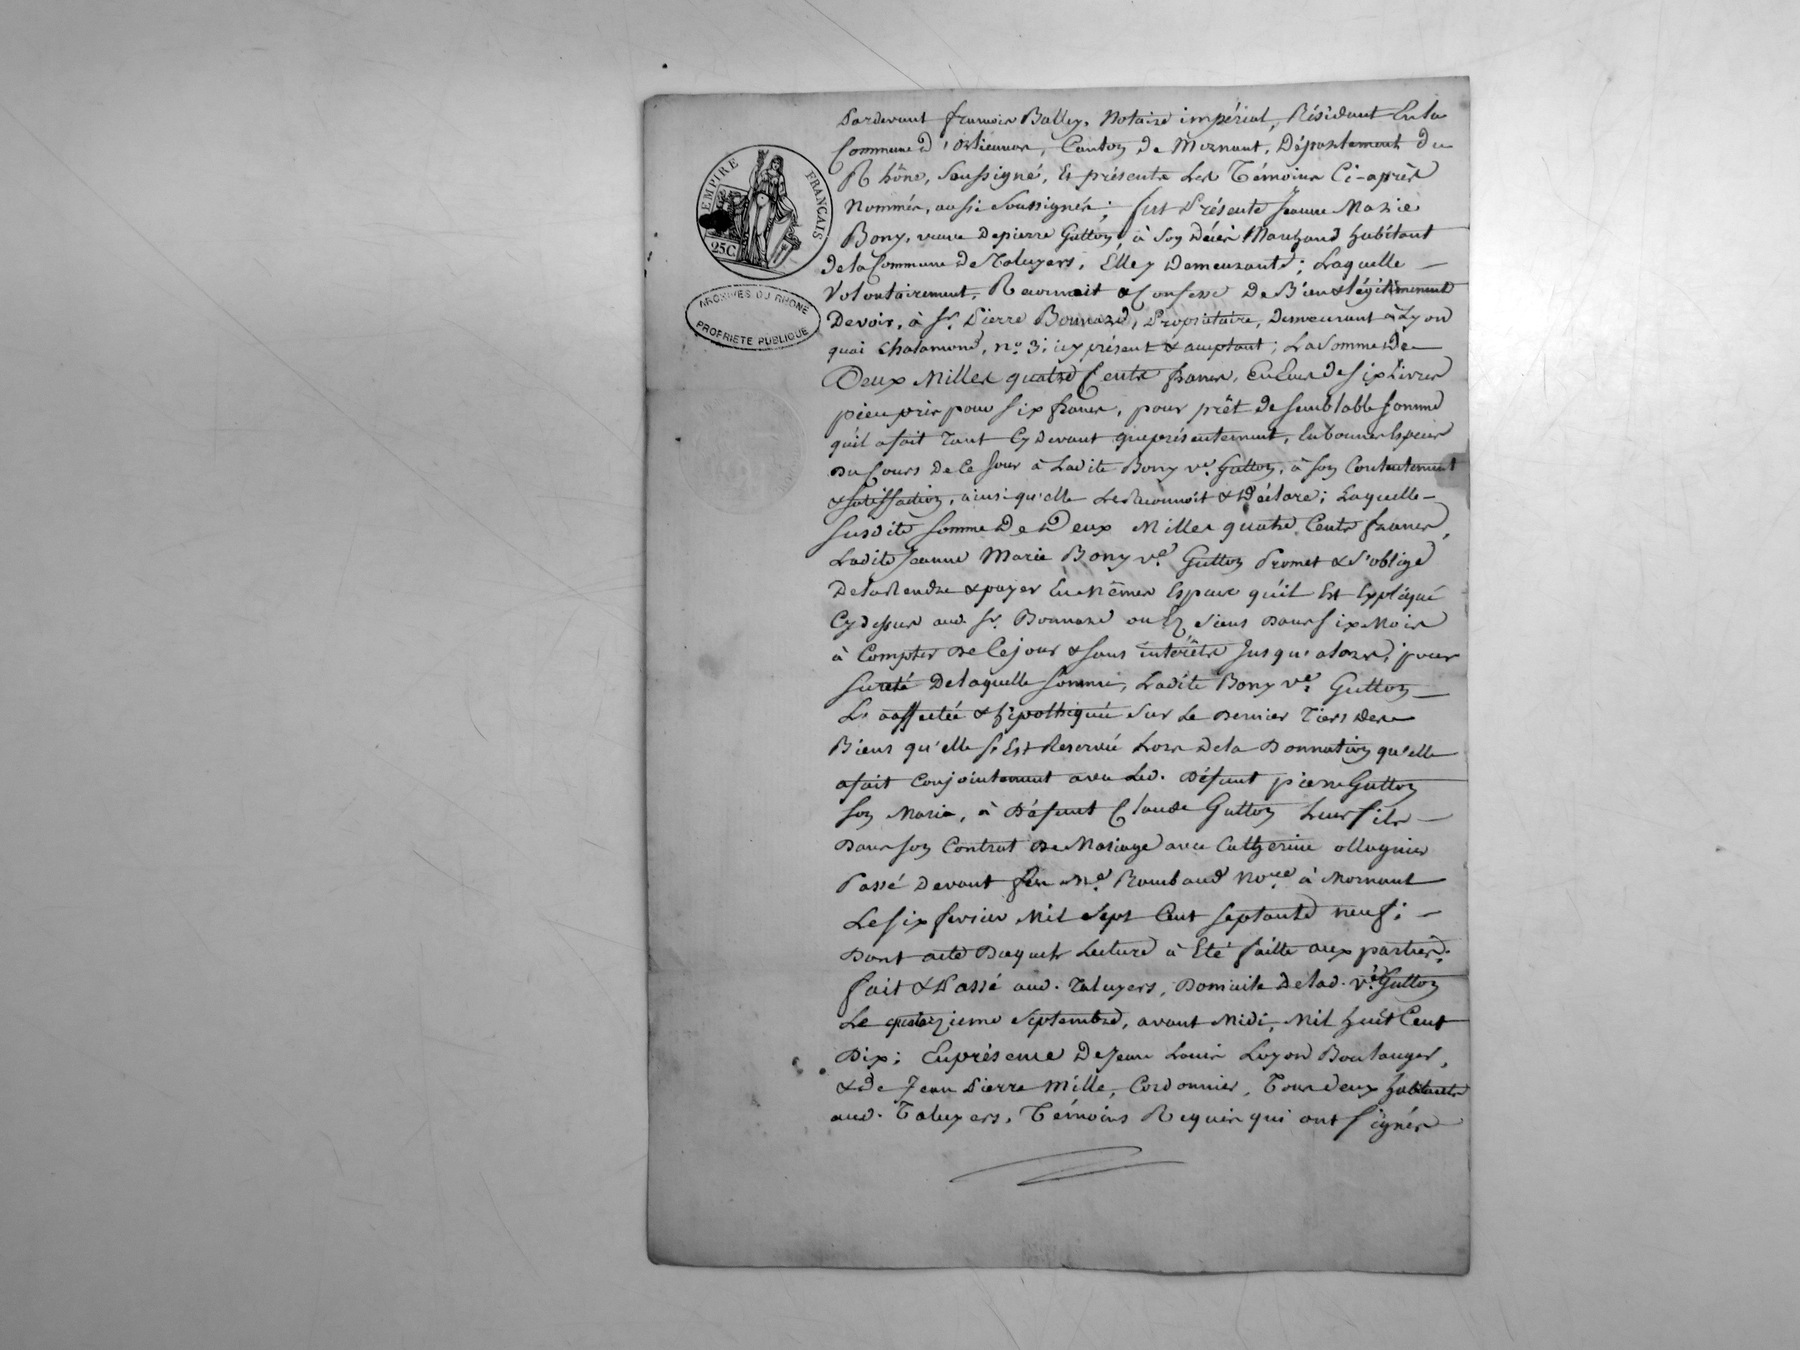 Pardevant françois Balley, Notaire impérial, Résidant En la
Commune d'Orliennas, Canton de Mornant, Département du
Rhône, Soussigné, Et présents Les Témoins Ci-après
Nommés, aussi Soussignés; fut Présente Jeanne Marie
Bony, veuve de pierre Gutton, à son décès Marchand habitant
de la Commune de Taluyers, Elle y demeurante; Laquelle
Volontairement, Reconnoit & Confesse de Bien & légitimement
Devoir, à Sr. Pierre Bonnard, Propriétaire, demeurant à Lyon
quai Chalamond, no. 3, icy présent & acceptant; La Somme de
Deux Milles quatre Cents francs, En Ecus de Six Livres
pièce pris pour Six francs, pour prêt de Semblable Somme
qu'il a fait Tant Cy devant que présentement, En bonnes Espèces
du Cours de Ce Jour à Ladite Bony ve. Gutton, à son Contentement
& Satisfaction, ainsi qu'elle Le Reconnoit & Déclare; Laquelle
Susdite Somme de Deux Milles quatre Cents francs,
Ladite Jeanne Marie Bony ve. Gutton Promet & s'oblige
De la Rendre & payer En Mêmes Espèces qu'il Est Expliqué
Cy dessus aud. Sr. Bonnard ou Ez Siens dans Six Mois
à Compter de Ce jour & Sans intérêts Jusqu'alors; pour
Sureté de laquelle Somme, Ladite Bony ve. Gutton
L'a affectée & hipothiquée Sur Le dernier Tiers des
Biens qu'elle S'Est Reservée Lors de la Donnation qu'elle
a fait Conjointement avec Led. défunt pierre Gutton
Son Marie, à Défunt Claude Gutton Leur fils
dans son Contrat de Mariage avec Catherine ollagnier
Passé devant feu Me. Rambaud Nore à Mornant
Le Six fevrier Mil Sept Cent Septante neuf;
Dont acte Duquel Lecture à Eté faitte aux parties.
fait & Passé aud. Taluyers, Domicile de lad. ve. Gutton
Le quatorzieme Septembre, avant Midi, Mil huit Cent
Dix; En présence de Jean Louis Luyon Boulanger,
& de Jean Pierre Mille, Cordonnier, Tous deux habitants
aud. Taluyers, Témoins Requis qui ont Signés
EMPIRE FRANÇAIS
25C.
ARCHIVES DU RHONE
PROPRIETE PUBLIQUE